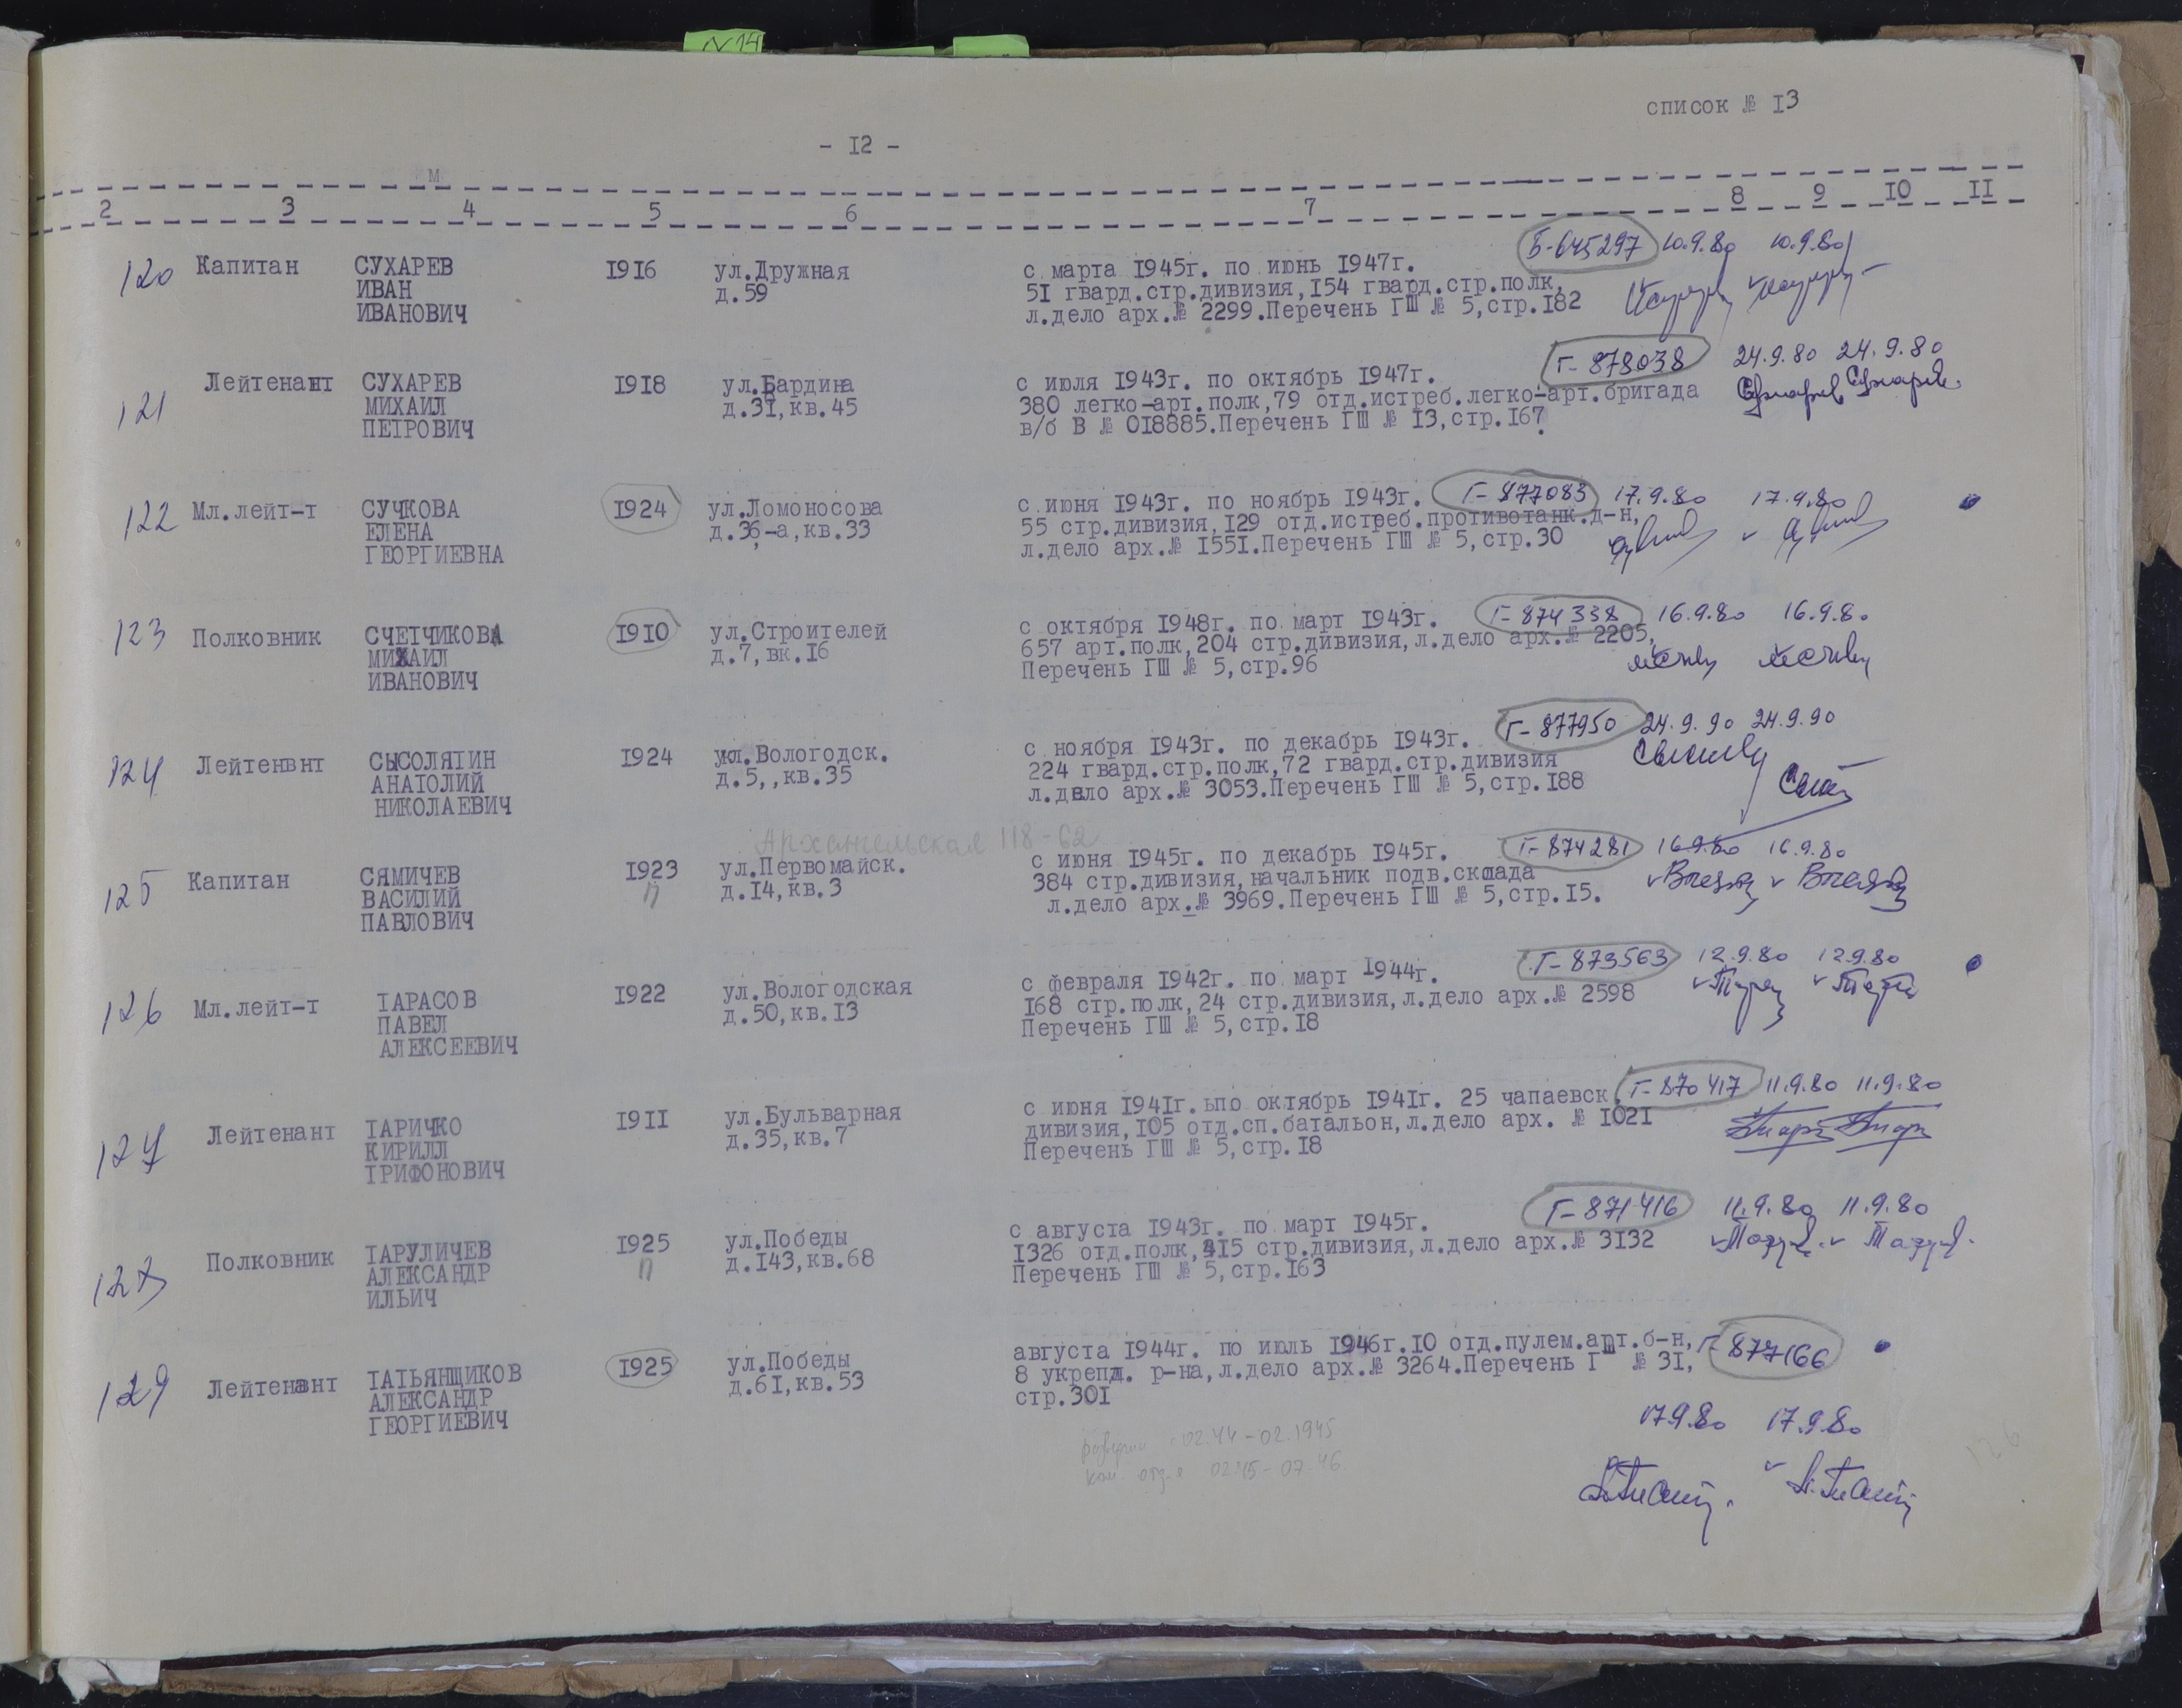 N14
список № I3
- I2 -
м
2 3 4 5 6 7 8 9 10 II
120 Капитан СУХАРЕВ I9I6 ул.Дружная с марта I945г. по июнь I947г. Б-645297 10.9.80 10.9.80
ИВАН д.59 5I гвард.стр.дивизия,I54 гвард.стр.полк,
ИВАНОВИЧ л.дело арх.№ 2299.Перечень ГШ № 5,стр.I82
121 Лейтенант СУХАРЕВ I9I8 ул.Бардина с июля I943г. по октябрь I947г. Г-878038 24.9.80 24.9.80
МИХАИЛ д.3I,кв.45 380 легко-арт.полк,79 отд.истреб.легко-арт.бригада
ПЕТРОВИЧ в/б В № 0I8885.Перечень ГШ № I3,стр.I67.
122 Мл.лейт-т СУЧКОВА I924 ул.Ломоносова с июня I943г. по ноябрь I943г. Г-877083 17.9.80 17.9.80
ЕЛЕНА д.36,-а,кв.33 55 стр.дивизия,I29 отд.истреб.противотанк.д-н,
ГЕОРГИЕВНА л.дело арх.№ I55I.Перечень ГШ № 5,стр.30
123 Полковник СЧЕТЧИКОВ I9I0 ул.Строителей с октября I948г. по март I943г. Г-874338 16.9.80 16.9.80
МИХАИЛ д.7,вк.I6 657 арт.полк,204 стр.дивизия,л.дело арх.№ 2205,
ИВАНОВИЧ Перечень ГШ № 5,стр.96
124 Лейтенвнт СЫСОЛЯТИН I924 ул.Вологодск. с ноября I943г. по декабрь I943г. Г-877950 24.9.90 24.9.90
АНАТОЛИЙ д.5,,кв.35 224 гвард.стр.полк,72 гвард.стр.дивизия
НИКОЛАЕВИЧ л.дело арх.№ 3053.Перечень ГШ № 5,стр.I88
Архангельская 118-62
125 Капитан СЯМИЧЕВ I923 ул.Первомайск. с июня I945г. по декабрь I945г. Г-874281 16.9.80 16.9.80
ВАСИЛИЙ п д.I4,кв.3 384 стр.дивизия,начальник подв.склада
ПАВЛОВИЧ л.дело арх.№ 3969.Перечень ГШ № 5,стр.I5.
126 Мл.лейт-т ТАРАСОВ I922 ул.Вологодская с февраля I942г. по март I944г. Г-873563 12.9.80 12.9.80
ПАВЕЛ д.50,кв.I3 I68 стр.полк,24 стр.дивизия,л.дело арх.№ 2598
АЛЕКСЕЕВИЧ Перечень ГШ № 5,стр.I8
127 Лейтенант ТАРИЧКО I9II ул.Бульварная с июня I94Iг. ьпо октябрь I94Iг. 25 чапаевск. Г-870417 11.9.80 11.9.80
КИРИЛЛ д.35,кв.7 дивизия,I05 отд.сп.батальон,л.дело арх. № I02I
ТРИФОНОВИЧ Перечень ГШ № 5,стр.I8
128 Полковник ТАРУЛИЧЕВ I925 ул.Победы с августа I943г. по март I945г. Г-871416 11.9.80 11.9.80
АЛЕКСАНДР п д.I43,кв.68 I326 отд.полк,4I5 стр.дивизия,л.дело арх.№ 3I32
ИЛЬИЧ Перечень ГШ № 5,стр.I63
129 Лейтенант ТАТЬЯНЩИКОВ I925 ул.Победы августа I944г. по июль I946г.I0 отд.пулем.арт.б-н, Г-877166
АЛЕКСАНДР д.6I,кв.53 8 укрепл. р-на,л.дело арх.№ 3264.Перечень ГШ № 3I,
ГЕОРГИЕВИЧ стр.30I
17.9.80 17.9.80
02.44-02.1945
ком. отд-я 02.45-07.46
126